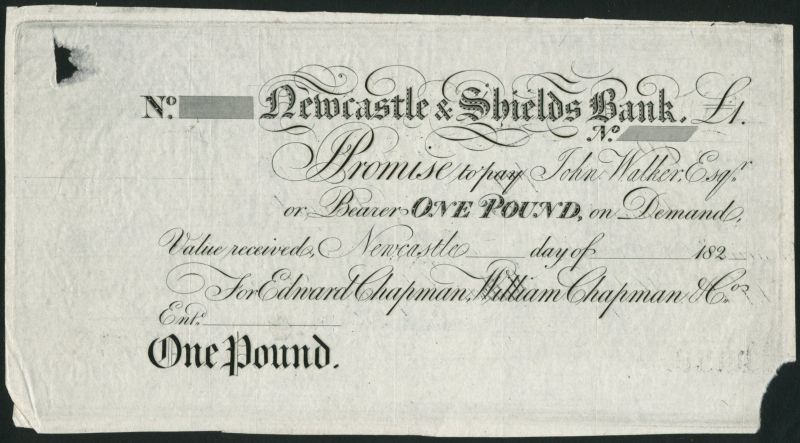 No. Newcastle & Shields Bank. £1.
No.
I Promise to pay John Walker, Esqr.
or Bearer ONE POUND, on Demand,
Value received, Newcastle day of 182
For Edward Chapman, William Chapman & Cos
Entd.
One Pound.